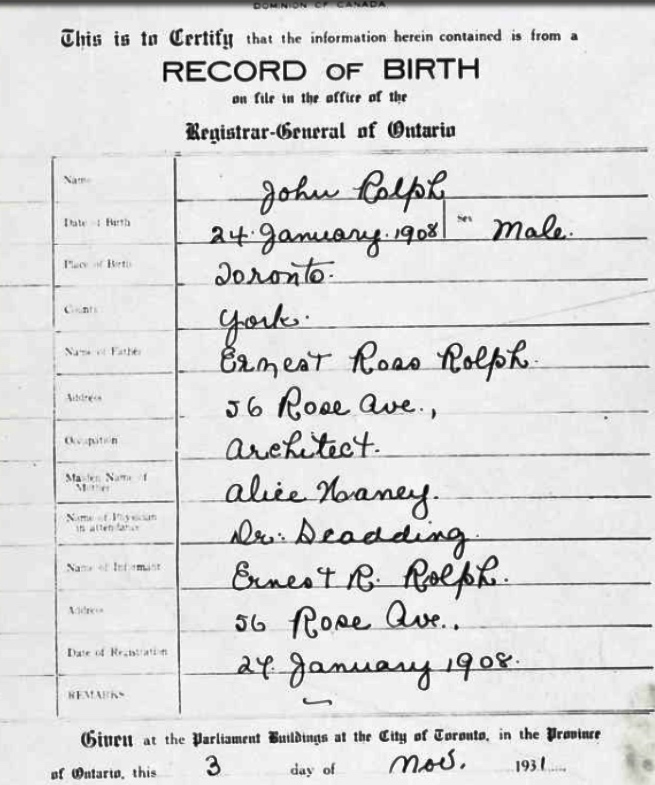 DOMINION OF CANADA
This is to Certify that the information herein contained is from a
RECORD OF BIRTH
on file in the office of the
Registrar-General of Ontario
Name John Rolph
Date of Birth 24. January. 1908 Sex Male.
Place of Birth Toronto.
County York.
Name of Father Ernest Ross Rolph.
Address 56 Rose Ave.,
Occupation Architect.
Maiden Name of Mother Alice Haney.
Name of Physician in attendance Dr. Deadding.
Name of Informant Ernest R. Rolph.
Address 56 Rose Ave..
Date of Registration 24. January 1908.
REMARKS
Given at the Parliament Buildings at the City of Toronto, in the Province
of Ontario, this 3 day of Nov. 1931